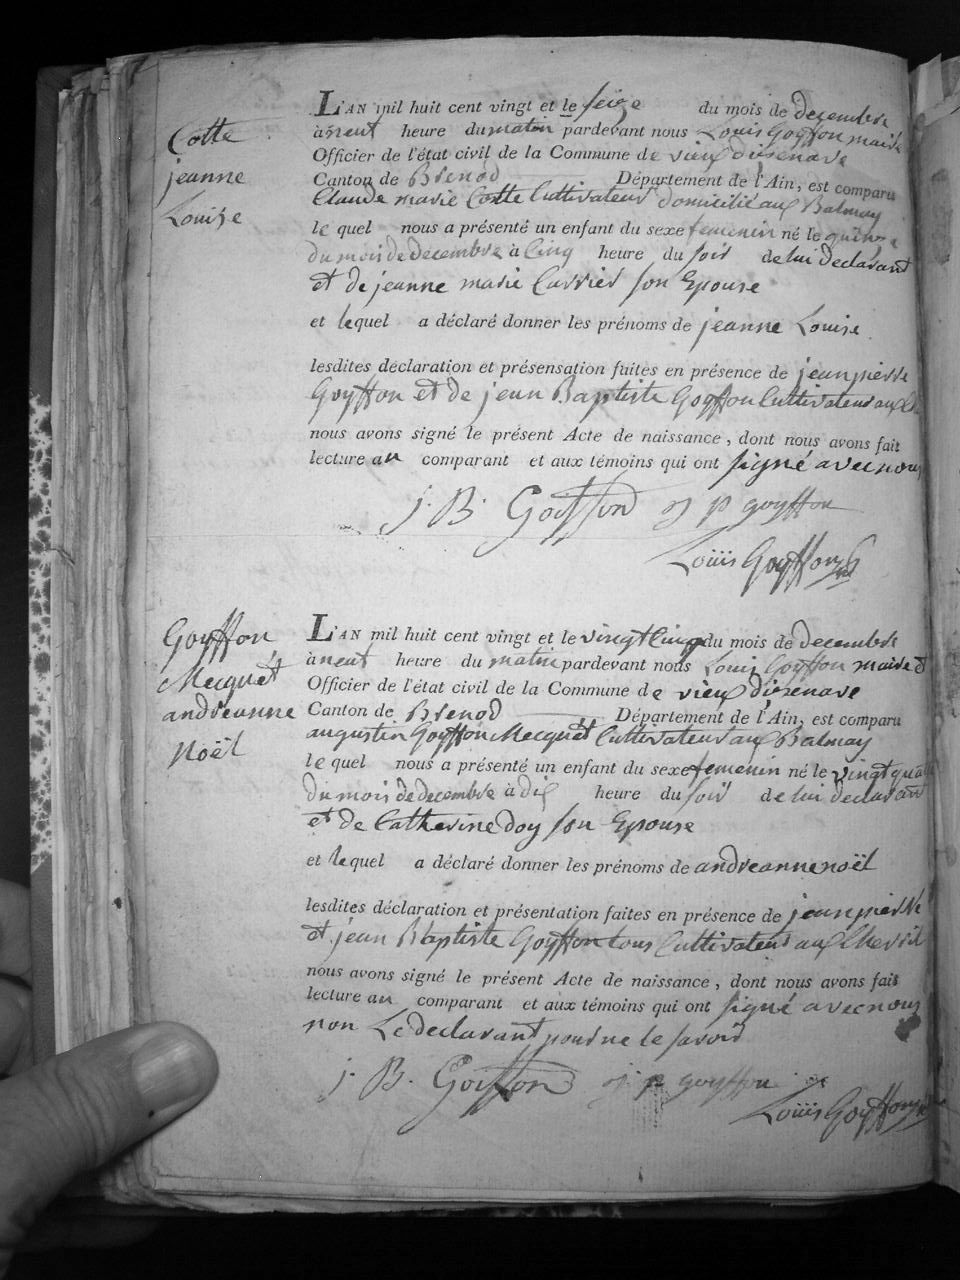 Cotte
jeanne
Louise
L'AN mil huit cent vingt et le seize du mois de decembre
à neuf heure du matin pardevant nous Louis Goyffon maire
Officier de l'état civil de la Commune de vieux disenave
Canton de Brenod Département de l'Ain, est comparu
Claude marie Cotte Cultivateur domicilié aux Balmay
le quel nous a présenté un enfant du sexe femenin né le quinze
du mois de decembre à Cinq heure du soir de lui declarant
et de jeanne marie Carrier son Epouse
et lequel a déclaré donner les prénoms de jeanne Louise
lesdites déclaration et présensation faites en présence de jean pierre
Goyffon et de jean Baptiste Goyffon Cultivateurs aux
nous avons signé le présent Acte de naissance, dont nous avons fait
lecture au comparant et aux témoins qui ont signé avec nous
j. B. Goiffon j p goyffon
Louis Goyffon
Goyffon
Mecquet
andreanne
Noël
L'AN mil huit cent vingt et le vingt Cinq du mois de decembre
à neuf heure du matin pardevant nous Louis Goyffon maire et
Officier de l'état civil de la Commune de vieux disenave
Canton de Brenod Département de l'Ain, est comparu
augustin Goyffon Mecquet Cultivateur aux Balmay
le quel nous a présenté un enfant du sexe femenin né le vingt quatre
du mois de decembre à dix heure du soir de lui declarant
et de Catherine doy son Epouse
et lequel a déclaré donner les prénoms de andreanne noël
lesdites déclaration et présentation faites en présence de jean pierre
et jean Baptiste Goyffon tous Cultivateurs aux Chevril
nous avons signé le présent Acte de naissance, dont nous avons fait
lecture au comparant et aux témoins qui ont signé avec nous
non Le declarant pour ne le savoir
j. B. Goiffon j p goyffon
Louis Goyffon